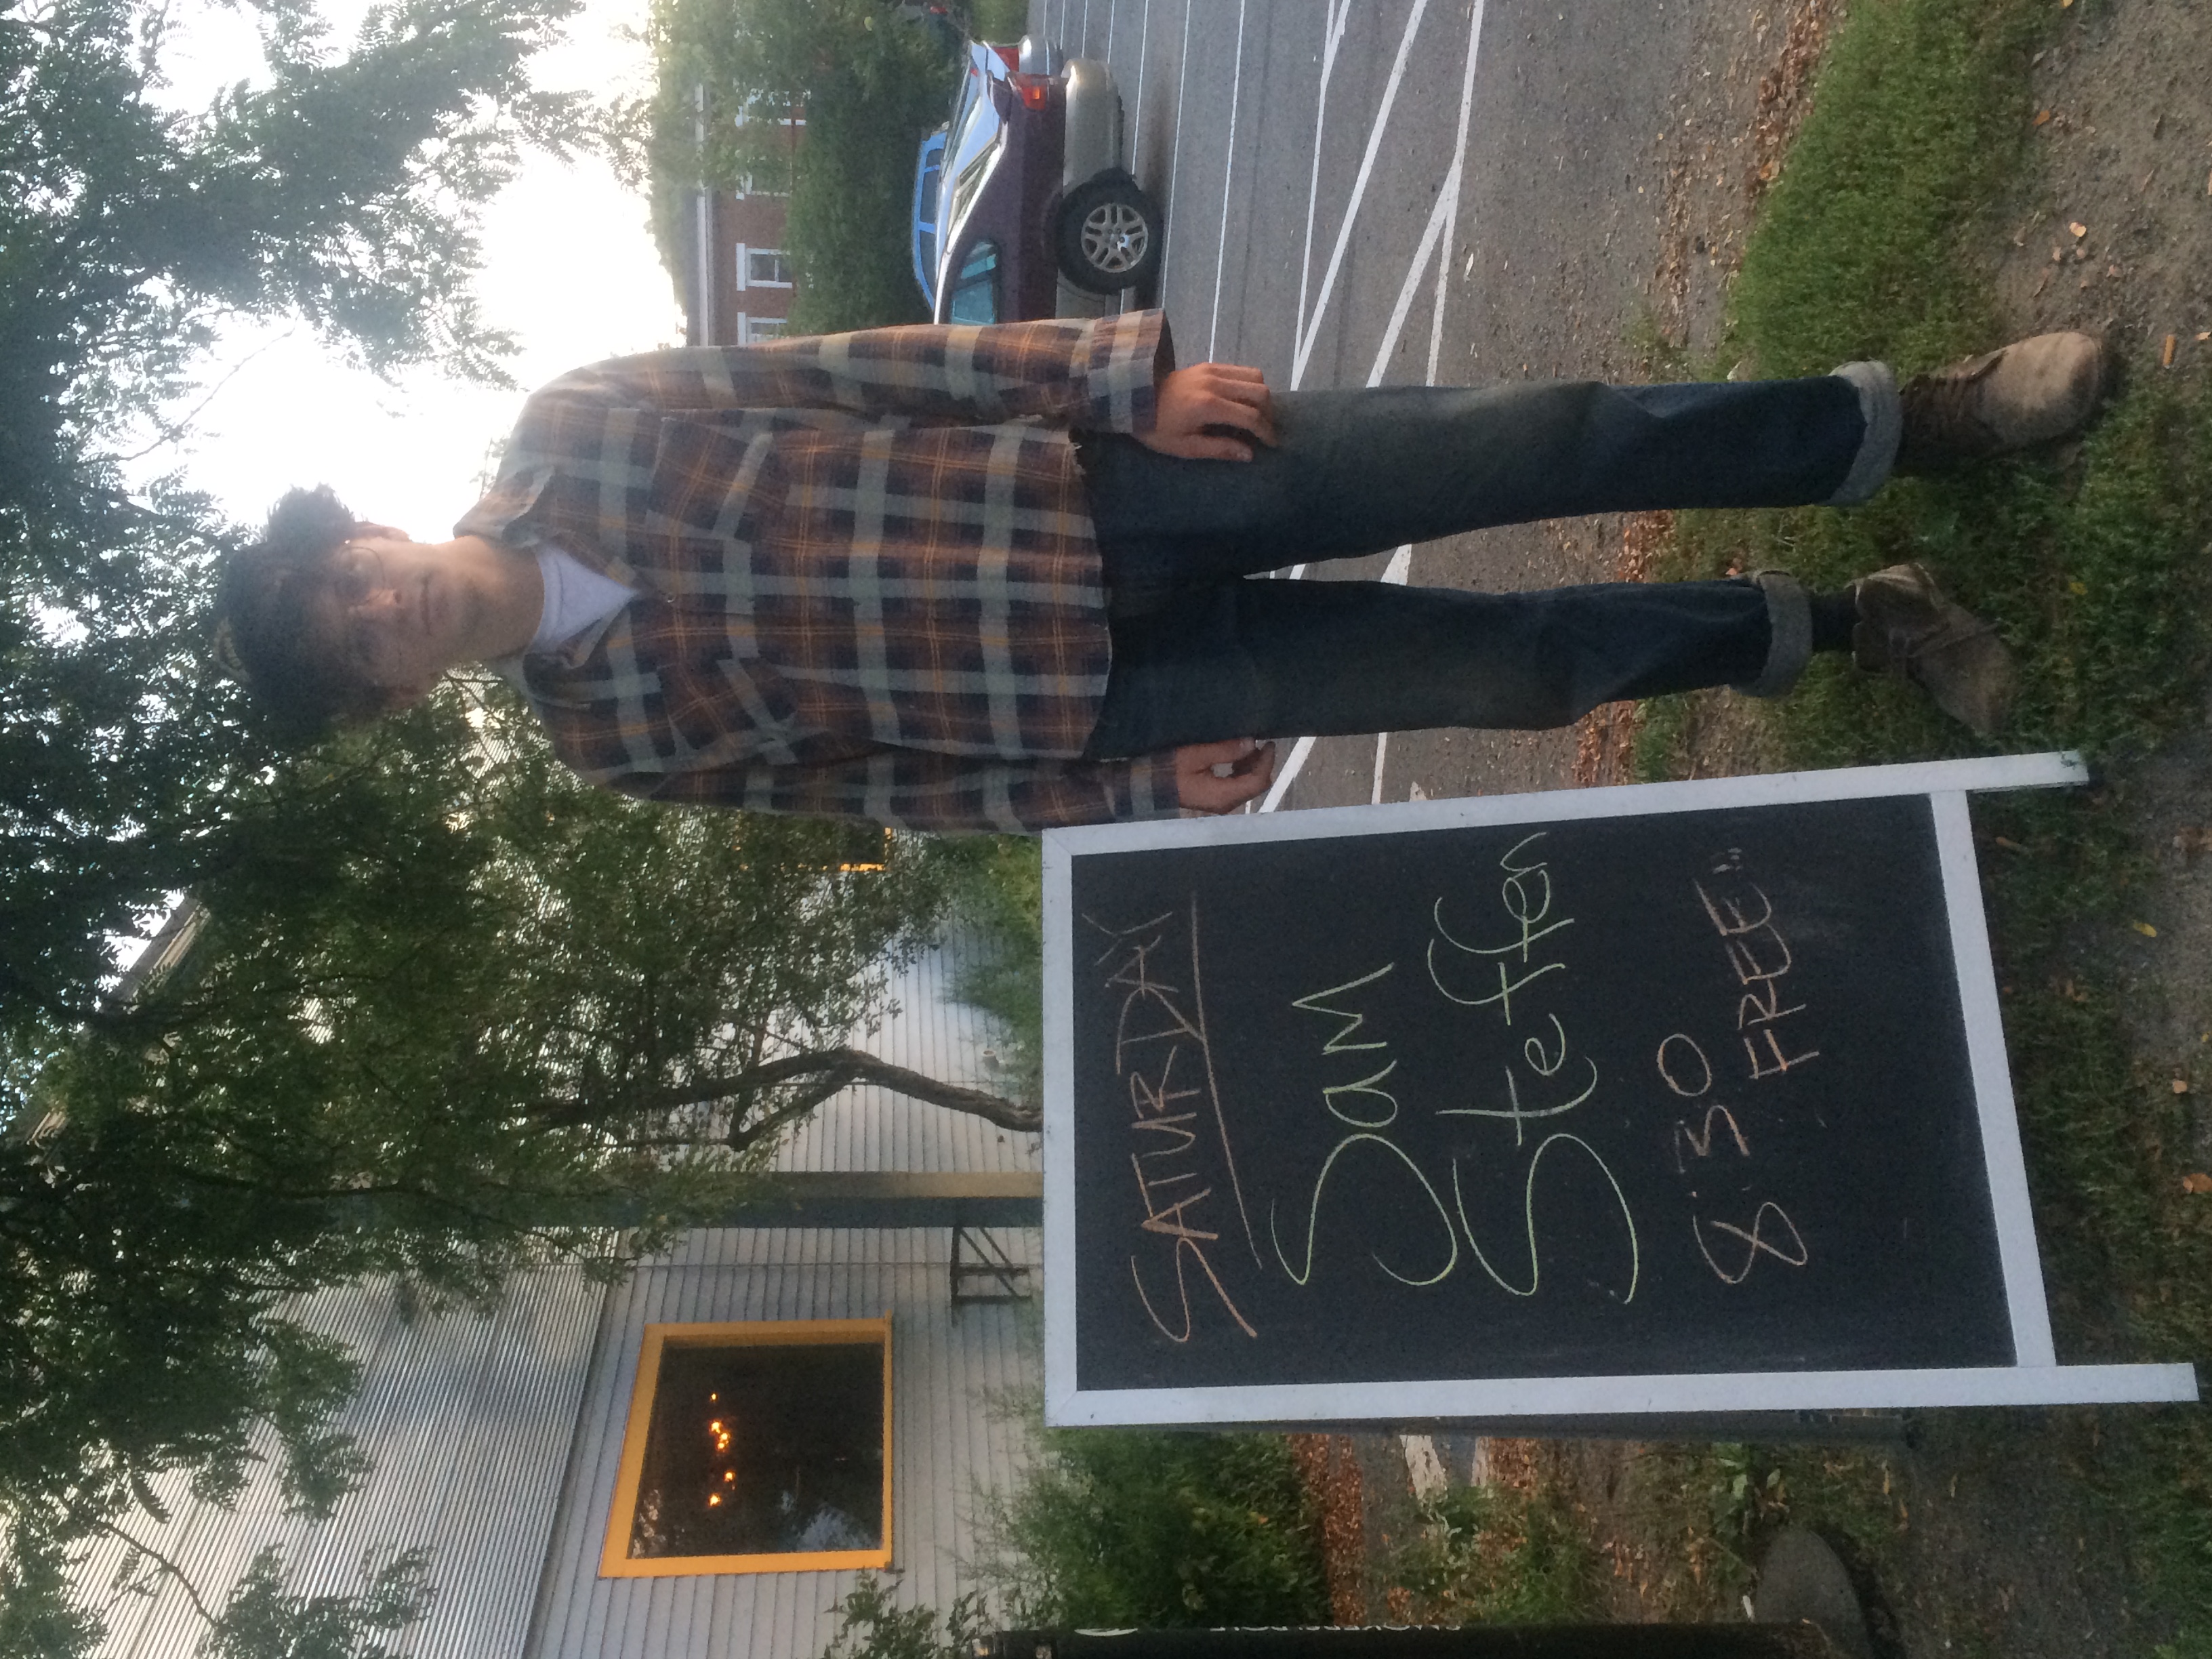 SATURDAY
Sam
Steffen
8:30
FREE!!!